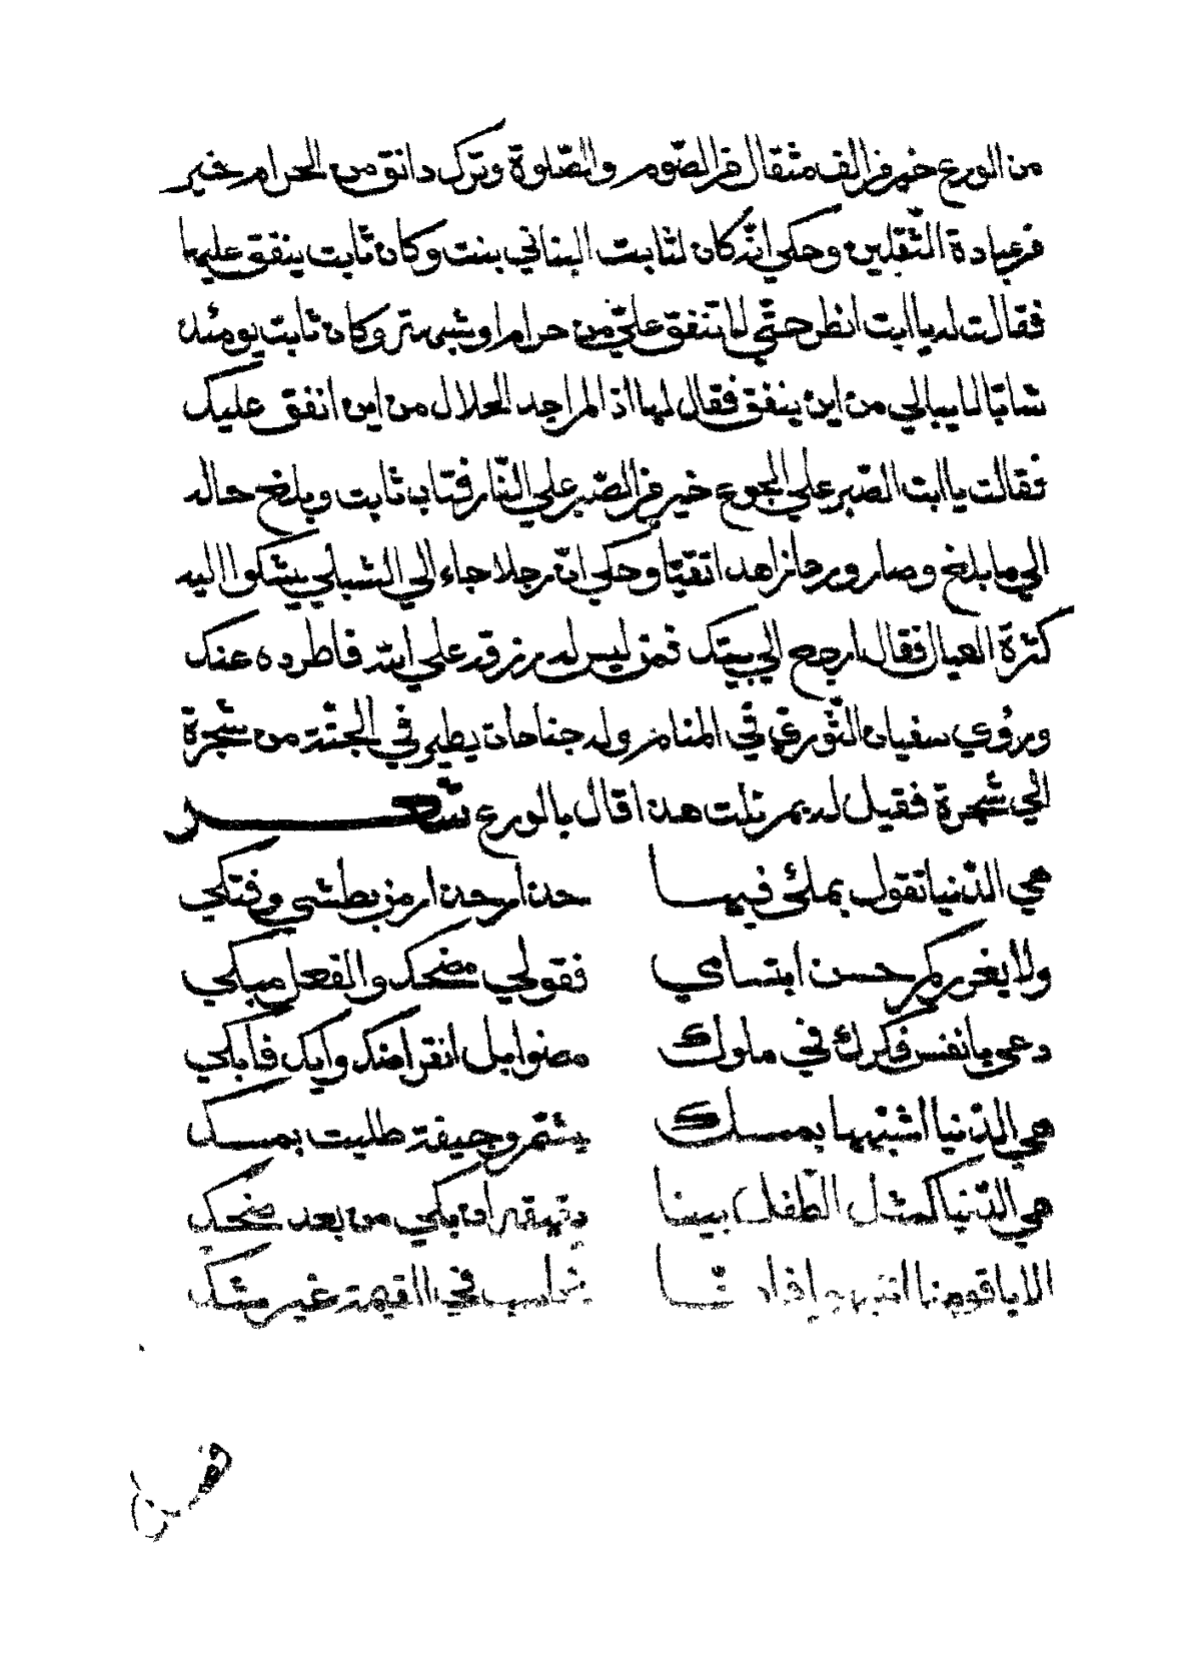 من الورع خير من الف مثقال من الصّوم والصّلوة وترك دانق من الحرام خير
من عبادة الثّقلين وحكي انّه كان لثابت البناني بنت وكان ثابت ينفق عليها
فقالت له يا ابت انظر حتّي لا تنفق عليّ من حرام او شبهة وكان ثابت يومئذ
شابّا لا يبالي من اين ينفق فقال لها اذا لم اجد الحلال من اين انفق عليك
فقالت يا ابت الصّبر علي الجوع خير من الصّبر علي النّار فتاب ثابت وبلغ حاله
الي ما بلغ وصار ورعا زاهدا تقيّا وحكي انّ رجلا جاء الي الشبلي يشكوا اليه
كثرة العيال فقال ارجع الي بيتك فمن ليس له رزقه علي الله فاطرده عنك
ورؤي سفيان الثّوري في المنام وله جناحان يطير في الجنّة من شجرة
الي شجرة فقيل له بم نلت هذا قال بالورع شعر
هي الدّنيا تقول بملئ فيها حذار حذار من بطشي وفتكي
ولا يغرركم حسن ابتسامي فقولي مضحك والفعل مبكي
دعي يا نفس فكرك في ملوك مضوا بل انقراضك وابك فابكي
هي الدّنيا اشبّهها بمسك يشمّ وجيفة طليت بمسك
هي الدّنيا كمثل الطّفل بينا يقهقه ان بكي من بعد ضحك
الا يا قومنا انتبهوا فانّا نحاسب في القيمة غير شك